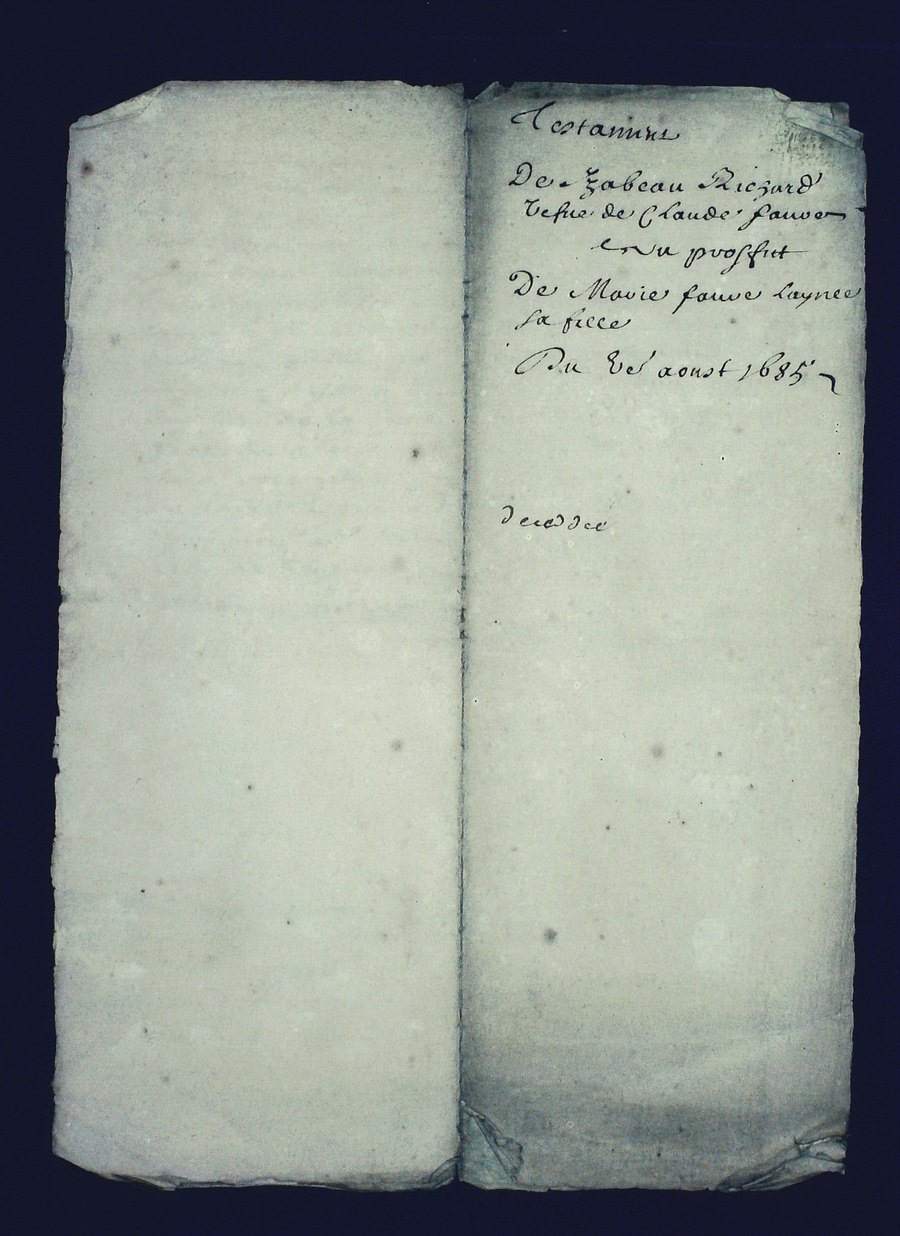 Testament
De Yzabeau Richard
Vefue de Claude fauve
en prosfit
De Marie fauve laynee
sa fille
Du Ve aoust 1685
decedee